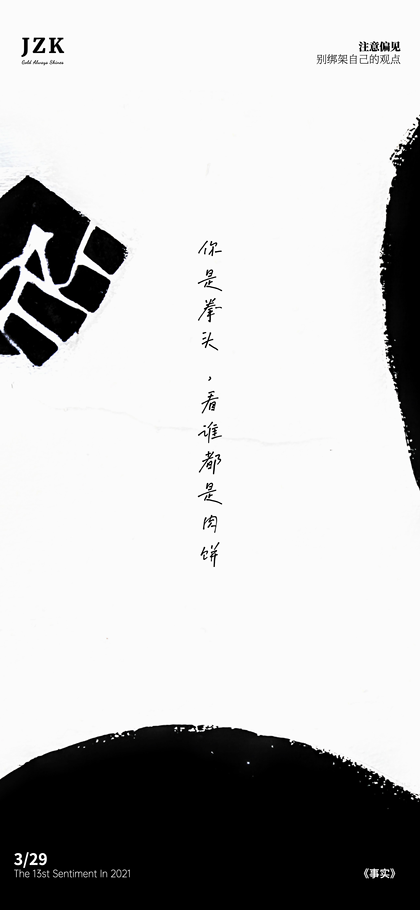 JZK
Gold Always Shines
注意偏见
别绑架自己的观点
你是拳头，看谁都是肉饼
3/29
The 13st Sentiment In 2021
《事实》